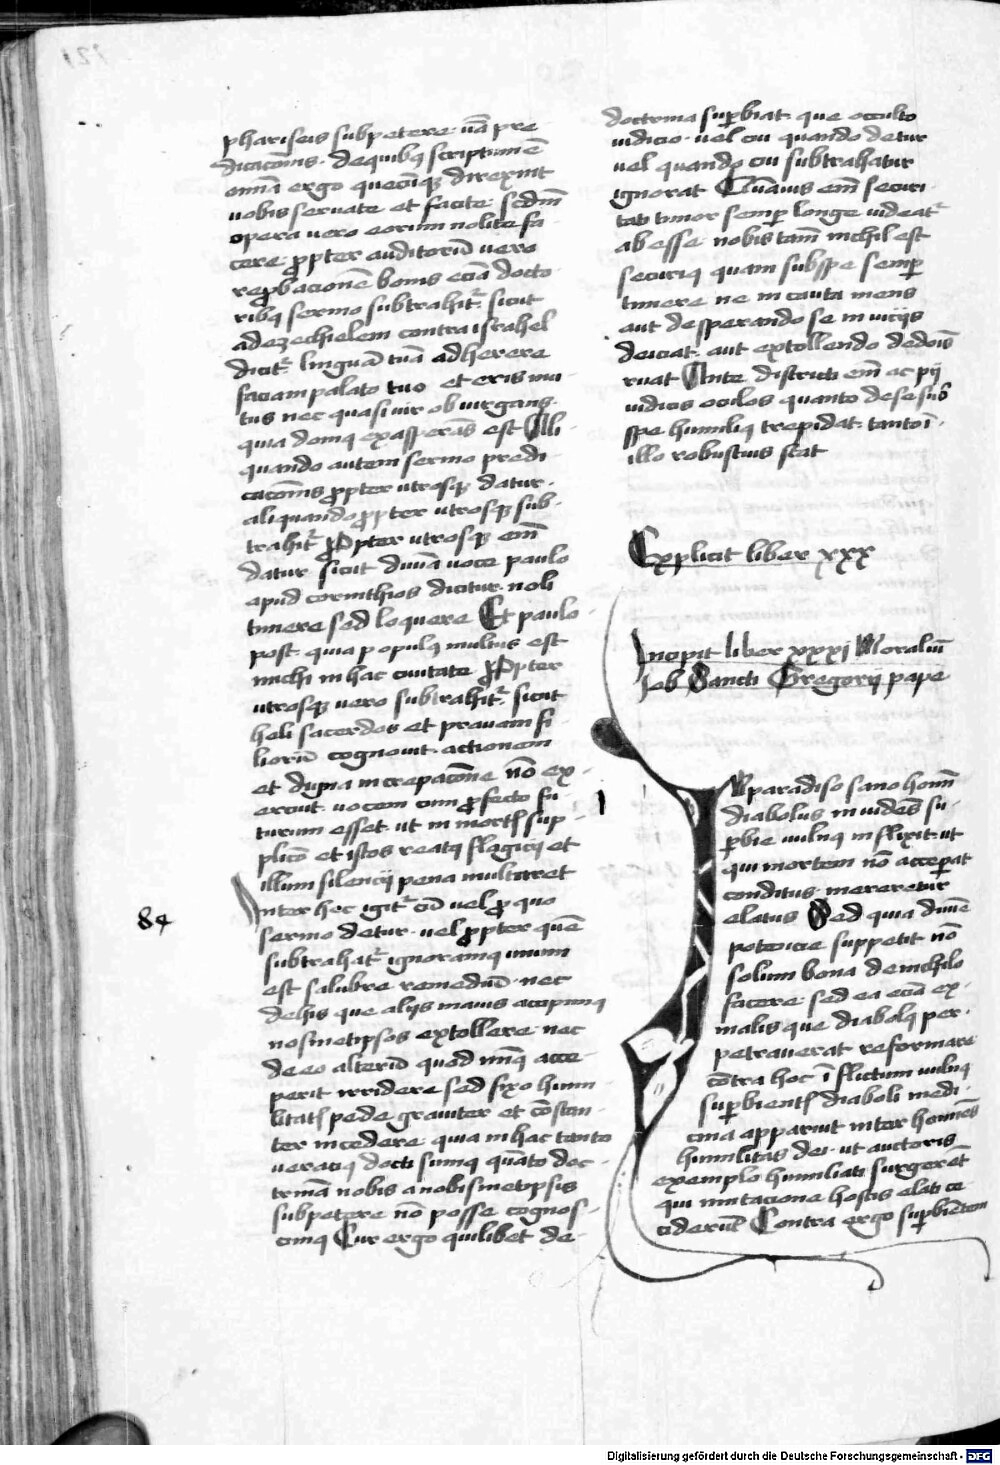 phariseis subpetere · uā pre-
dicacōnis · de quibꝫ scriptum ē
omīa ergo quecūqꝫ dixerint
uobis seruate et facite · scdm̄
opera vero eorum nolite fa-
cere · ꝓpter auditorū vero
reꝓbacionē bonis eciā docto-
ribꝫ sermo subtrahitᷣ sicut
ad ezechielem contra israhel
dicitᷣ linguā tuā adherere
faciam palato tuo et eris mu-
tus nec quasi uir obiurgans ·
quia domꝰ exasperās est Ali-
quando autem sermo predi-
cacōnis ꝓpter utrosqꝫ datur ·
aliquando ꝓpter utrosqꝫ sub-
trahitᷣ Propter utrosqꝫ em̄
datur sicut diuīa uoce paulo
apud corinthios dicitur noli
timere sed loquere Et paulo
post · quia populꝰ multus est
michi in hac ciuitate Propter
utrosqꝫ vero subtrahitᷣ sicut
heli sacerdos et prauam fi-
liorū cognouit actionem
et digna increpacōne nō ex-
ercuit · uocem cum ꝓfecto fu-
turum esset ut in mortꝭ sup-
plicō et istos reatꝰ flagicij et
illum silencij pena multaret
Inter hec igitᷣ cū vel ꝓ quo
84
sermo detur · uel ꝓpter quē
subtrahatᷣ ignoramꝰ unum
est salubre remediū · nec
de his que alijs maius accipimꝰ
nosmetipsos extollere nec
de eo alterū quod minꝰ acce-
perit irridere sed fixo humi-
litatꝭ pede grauiter et cōstan-
ter incedere quia in hac tanto
veraciꝰ docti sumꝰ quāto doc-
trinā nobis a nobismetipsis
subpetere nō posse cognos-
cimꝰ Cur ergo quilibet de
doctrina suꝑbiat · que occulto
iudicio · uel cui quando detur
uel quando cui subtrahatur
ignorat Quāuis em̄ securi-
tati timor semꝑ longe uideatᷣ
abesse nobis tam̄ nichil est
securiꝰ quam sub spe semꝑ
timere ne incauta mens
aut desperando se in uicijs
deiciat · aut extollendo de donis
ruat Ante districti em̄ ac pij
iudicis oculos quanto de se sub
spe humiliꝰ trepidat · tanto ī
illo robustius stat
Explicit liber xxx
Incipit liber xxxj Moraliū
Iob Sancti Gregorij pape
1
In paradiso sano homī
diabolus inuidēs su-
ꝑbie uulnꝰ inflixit · ut
qui mortem nō acceꝑat
conditus mereretur
elatus Sed quia diuīe
potencie suppetit nō
solum bona de nichilo
facere sed ea eciā ex
malis que diabolꝰ per-
petrauerat reformare
cōtra hoc īflictum uulnꝰ
suꝑbientꝭ diaboli medi-
cina apparuit inter homīes
humilitas dei · ut auctoris
exemplo humiliati surgerēt
qui imitacione hostis elati ce-
ciderūt Contra ergo suꝑbiētem
Digitalisierung gefördert durch die Deutsche Forschungsgemeinschaft - DFG